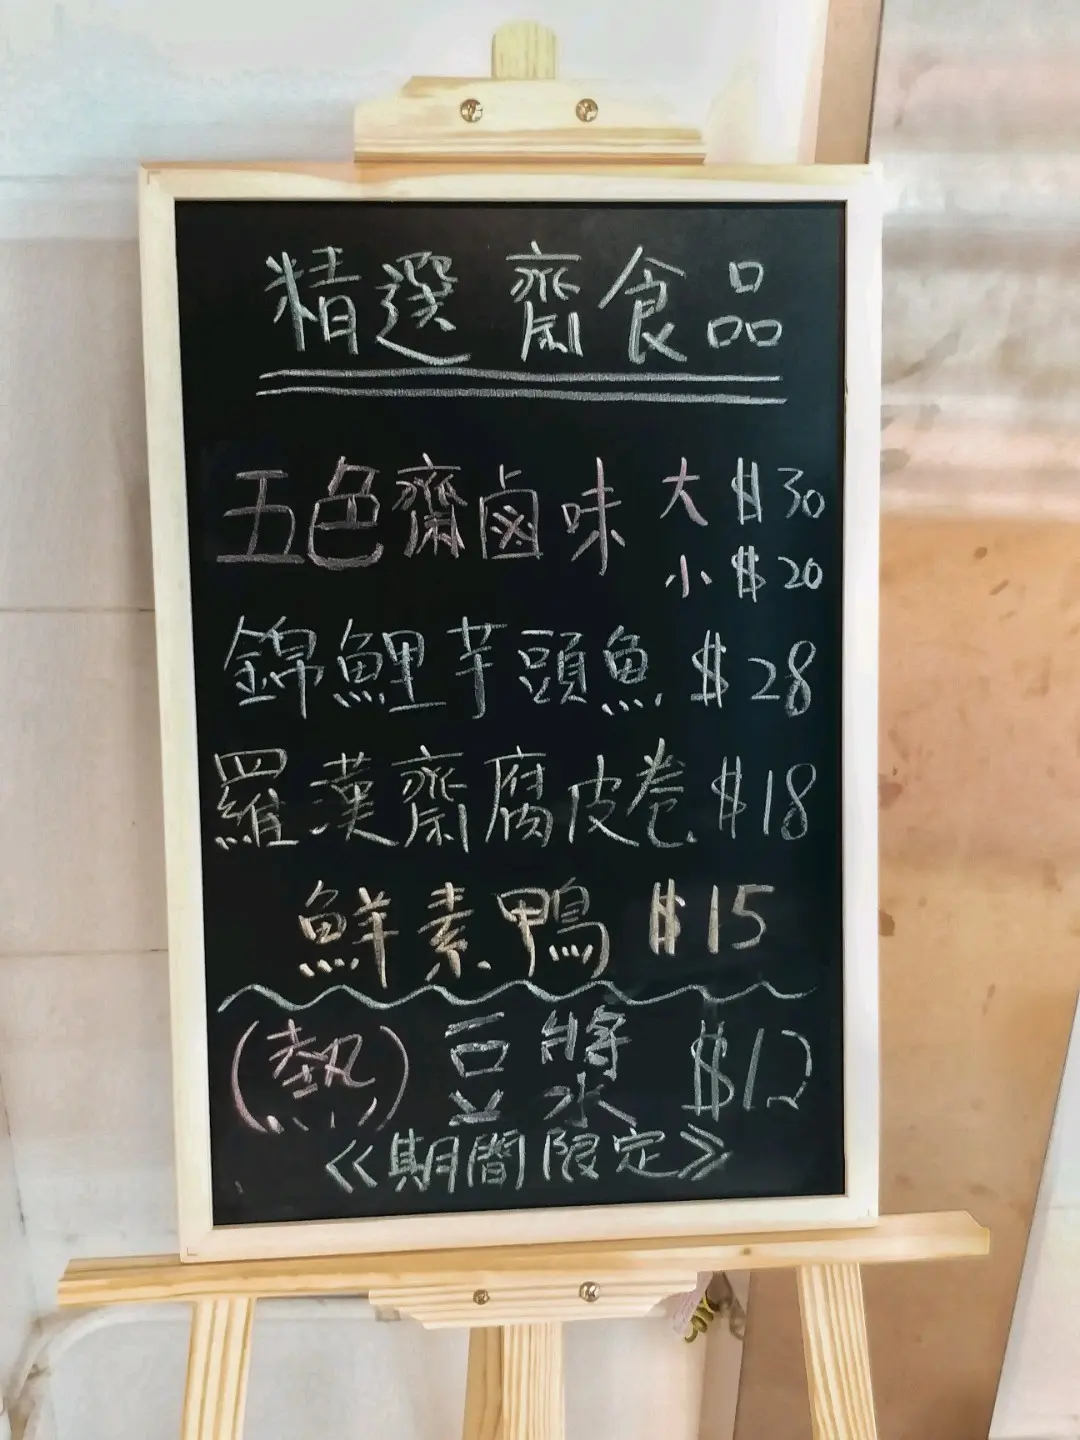 精選 齋食品
五色齋鹵味 大 $30
小 $20
錦鯉芋頭魚 $28
羅漢齋腐皮卷 $18
鮮素鴨 $15
(熱) 豆漿 $12
《期間限定》